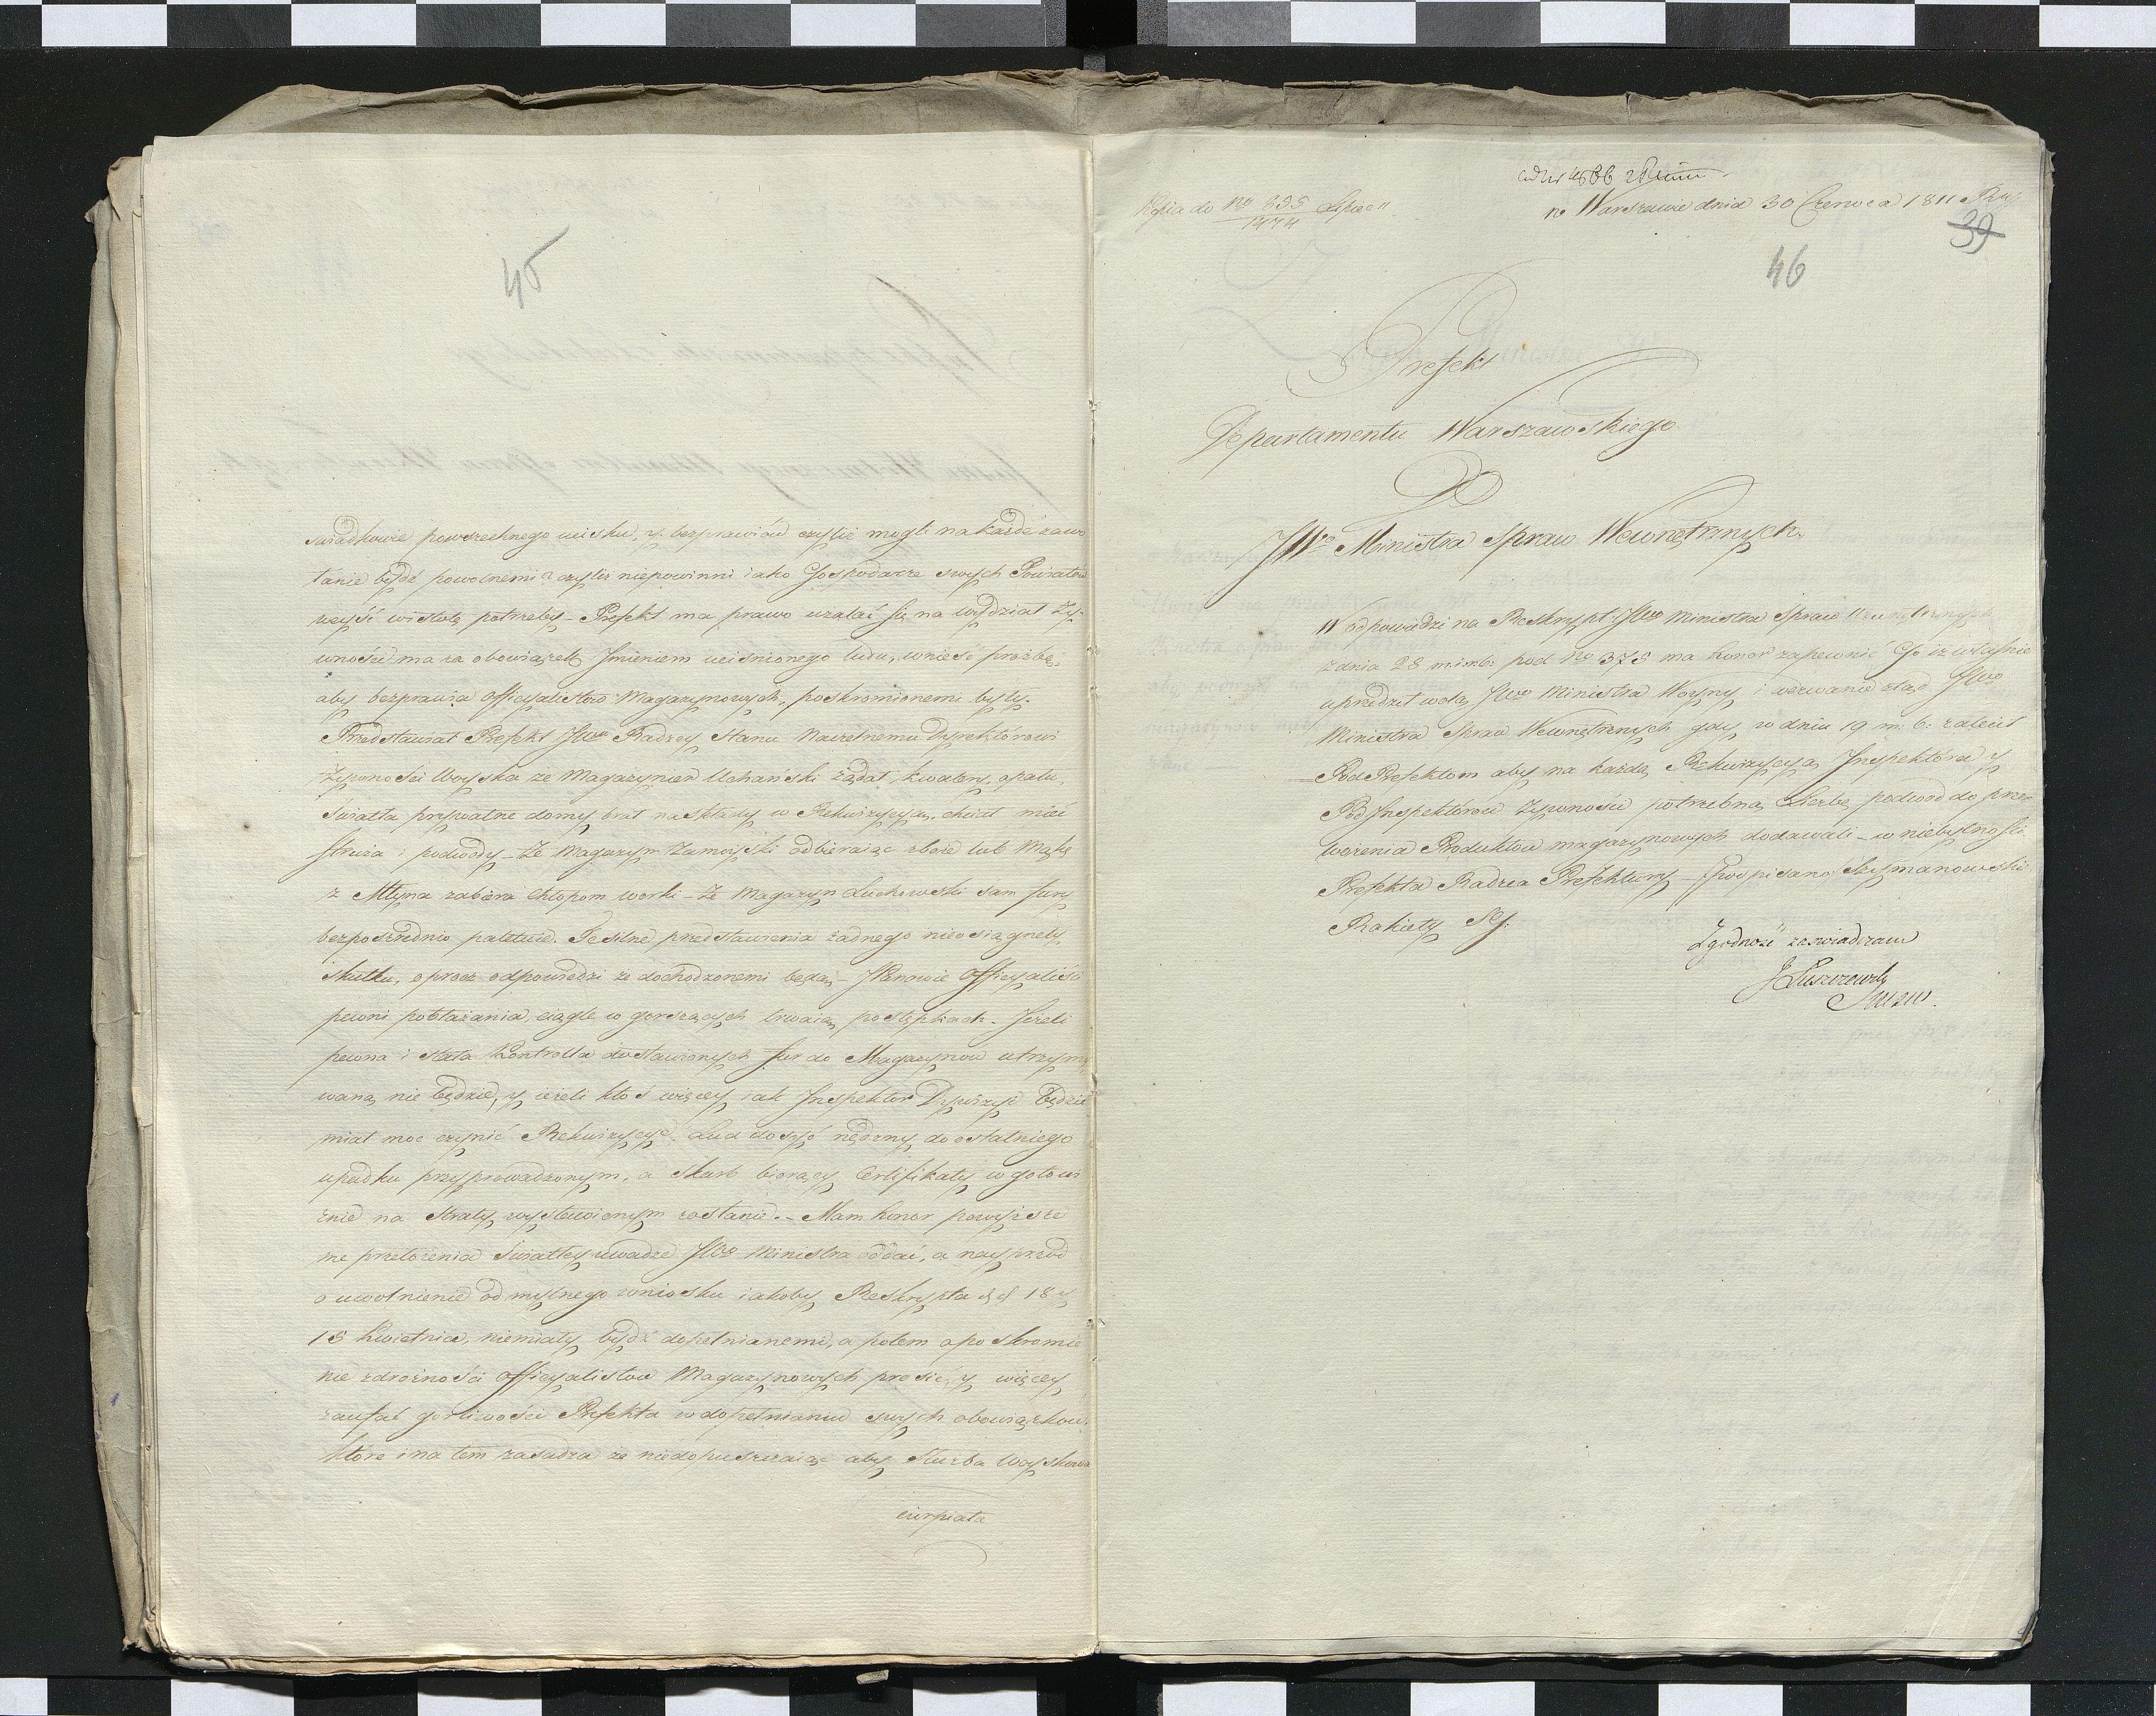 45
świadkowie powszechnego ucisku, y bezprawiów czyliż mogli na każde zawo
łanie bydź powolnemi? czyliż niepowinni iako Gospodarze swych Powiatów
weyść wistotę potrzeby – Prefekt ma prawo użalać się na wydział Ży-
wności ma za obowiązek Imieniem uciśnionego ludu, wnieść prożbę,
aby bezprawia Officyalistów Magazynowych, poskromionemi były.
Przedstawiał Prefekt JWu Radzcy Stanu Naczelnemu Dyrektorowi
Żywności Woyska że Magazynier Uchański żądał kwatery, opału,
światła prywatne domy brał na składy w Rekwizycyą, chciał mieć
stróża i podwody – że Magazyn Zamoyski odbieraiąc zboże lub Mąkę
z Młyna zabiera Chłopom worki – że Magazyn Łuchowski sam fury
bezpośrednio paletuie. Te silne przedstawienia żadnego nieosiągnęły
skutku, oprócz odpowiedzi że dochodzonemi będą – JPanowie Officyaliści
pewni pobłażania, ciągle w gorszących trwaią postępkach. Jeżeli
pewna i stała Kontrolla dostawionych fur do Magazynów utrzymy
waną nie będzie, y ieżeli ktoś więcey iak Inspektor Dywizyi będzie
miał moc czynić Rekwizycye. Lud dosyć nędzny, do ostatniego
upadku przyprowadzonym, a Skarb biorący Certifikaty w gotowi
znie na straty wystawionym zostanie. – Mam honor powyższe
me przełożenia Światłey uwadze JWo Ministra oddać, a nayprzód
o uwolnienie od mylnego wniosku iakoby Reskrypta 18 y
15 Kwietnia, niemiały bydź dopełnianemi, a potem o poskromie
nie zdrożności Officyalistów Magazynowych prosić, y więcey
zaufać gorliwości Prefekta w dopełnianiu swych obowiązków
które i na tem zasadza że niedopuszczaiąc aby Służba Woyskowa
cierpiała
Kopia do No 895 Lipiec 11
1474
w Warszawie dnia 30 Czerwca 1811 Roku
39
46
Prefekt
Departamentu Warszawskiego
Do
JWo Ministra Spraw Wewnętrznych
W odpowiedzi na Reskrypt JWo Ministra Spraw Wewnętrznych
z dnia 28 m. i r. b. pod No 378 ma honor zapewnić Go iż właśnie
uprzedził wolę JWo Ministra Woyny, i wezwanie ztąd JWo
Ministra Spraw Wewnętrznych gdy w dniu 19 m. b. zalecił
PodPrefektom aby na każdą Rekwizycyą Inspektóra y
Pod Inspektórów Żywności potrzebną Liczbę podwód do prze-
wożenia Produktów magazynowych dodawali – w niebytności
Prefekta Radzca Prefektury – podpisano Szymanowski
Rakiety SG.
Zgodność zaświadczam